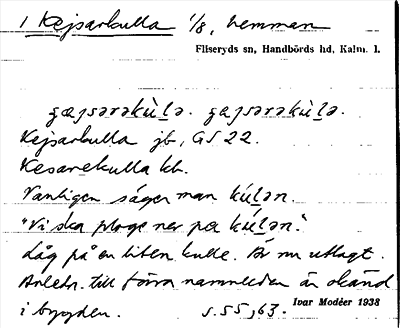 1 Kejsarkulla 1/8, hemman
Fliseryds sn, Handbörds hd, Kalm. l.
Kejsarkulla jb, GS 22.
Kesarekulla kb.
Vanligen säger man kúlən.
"Vi ska ploge ner på kúlən."
Låg på en liten kulle. Är nu utlagt.
Anledn. till förra namnleden är okänd
i bygden. s. 55, 63.
Ivar Modéer 1938